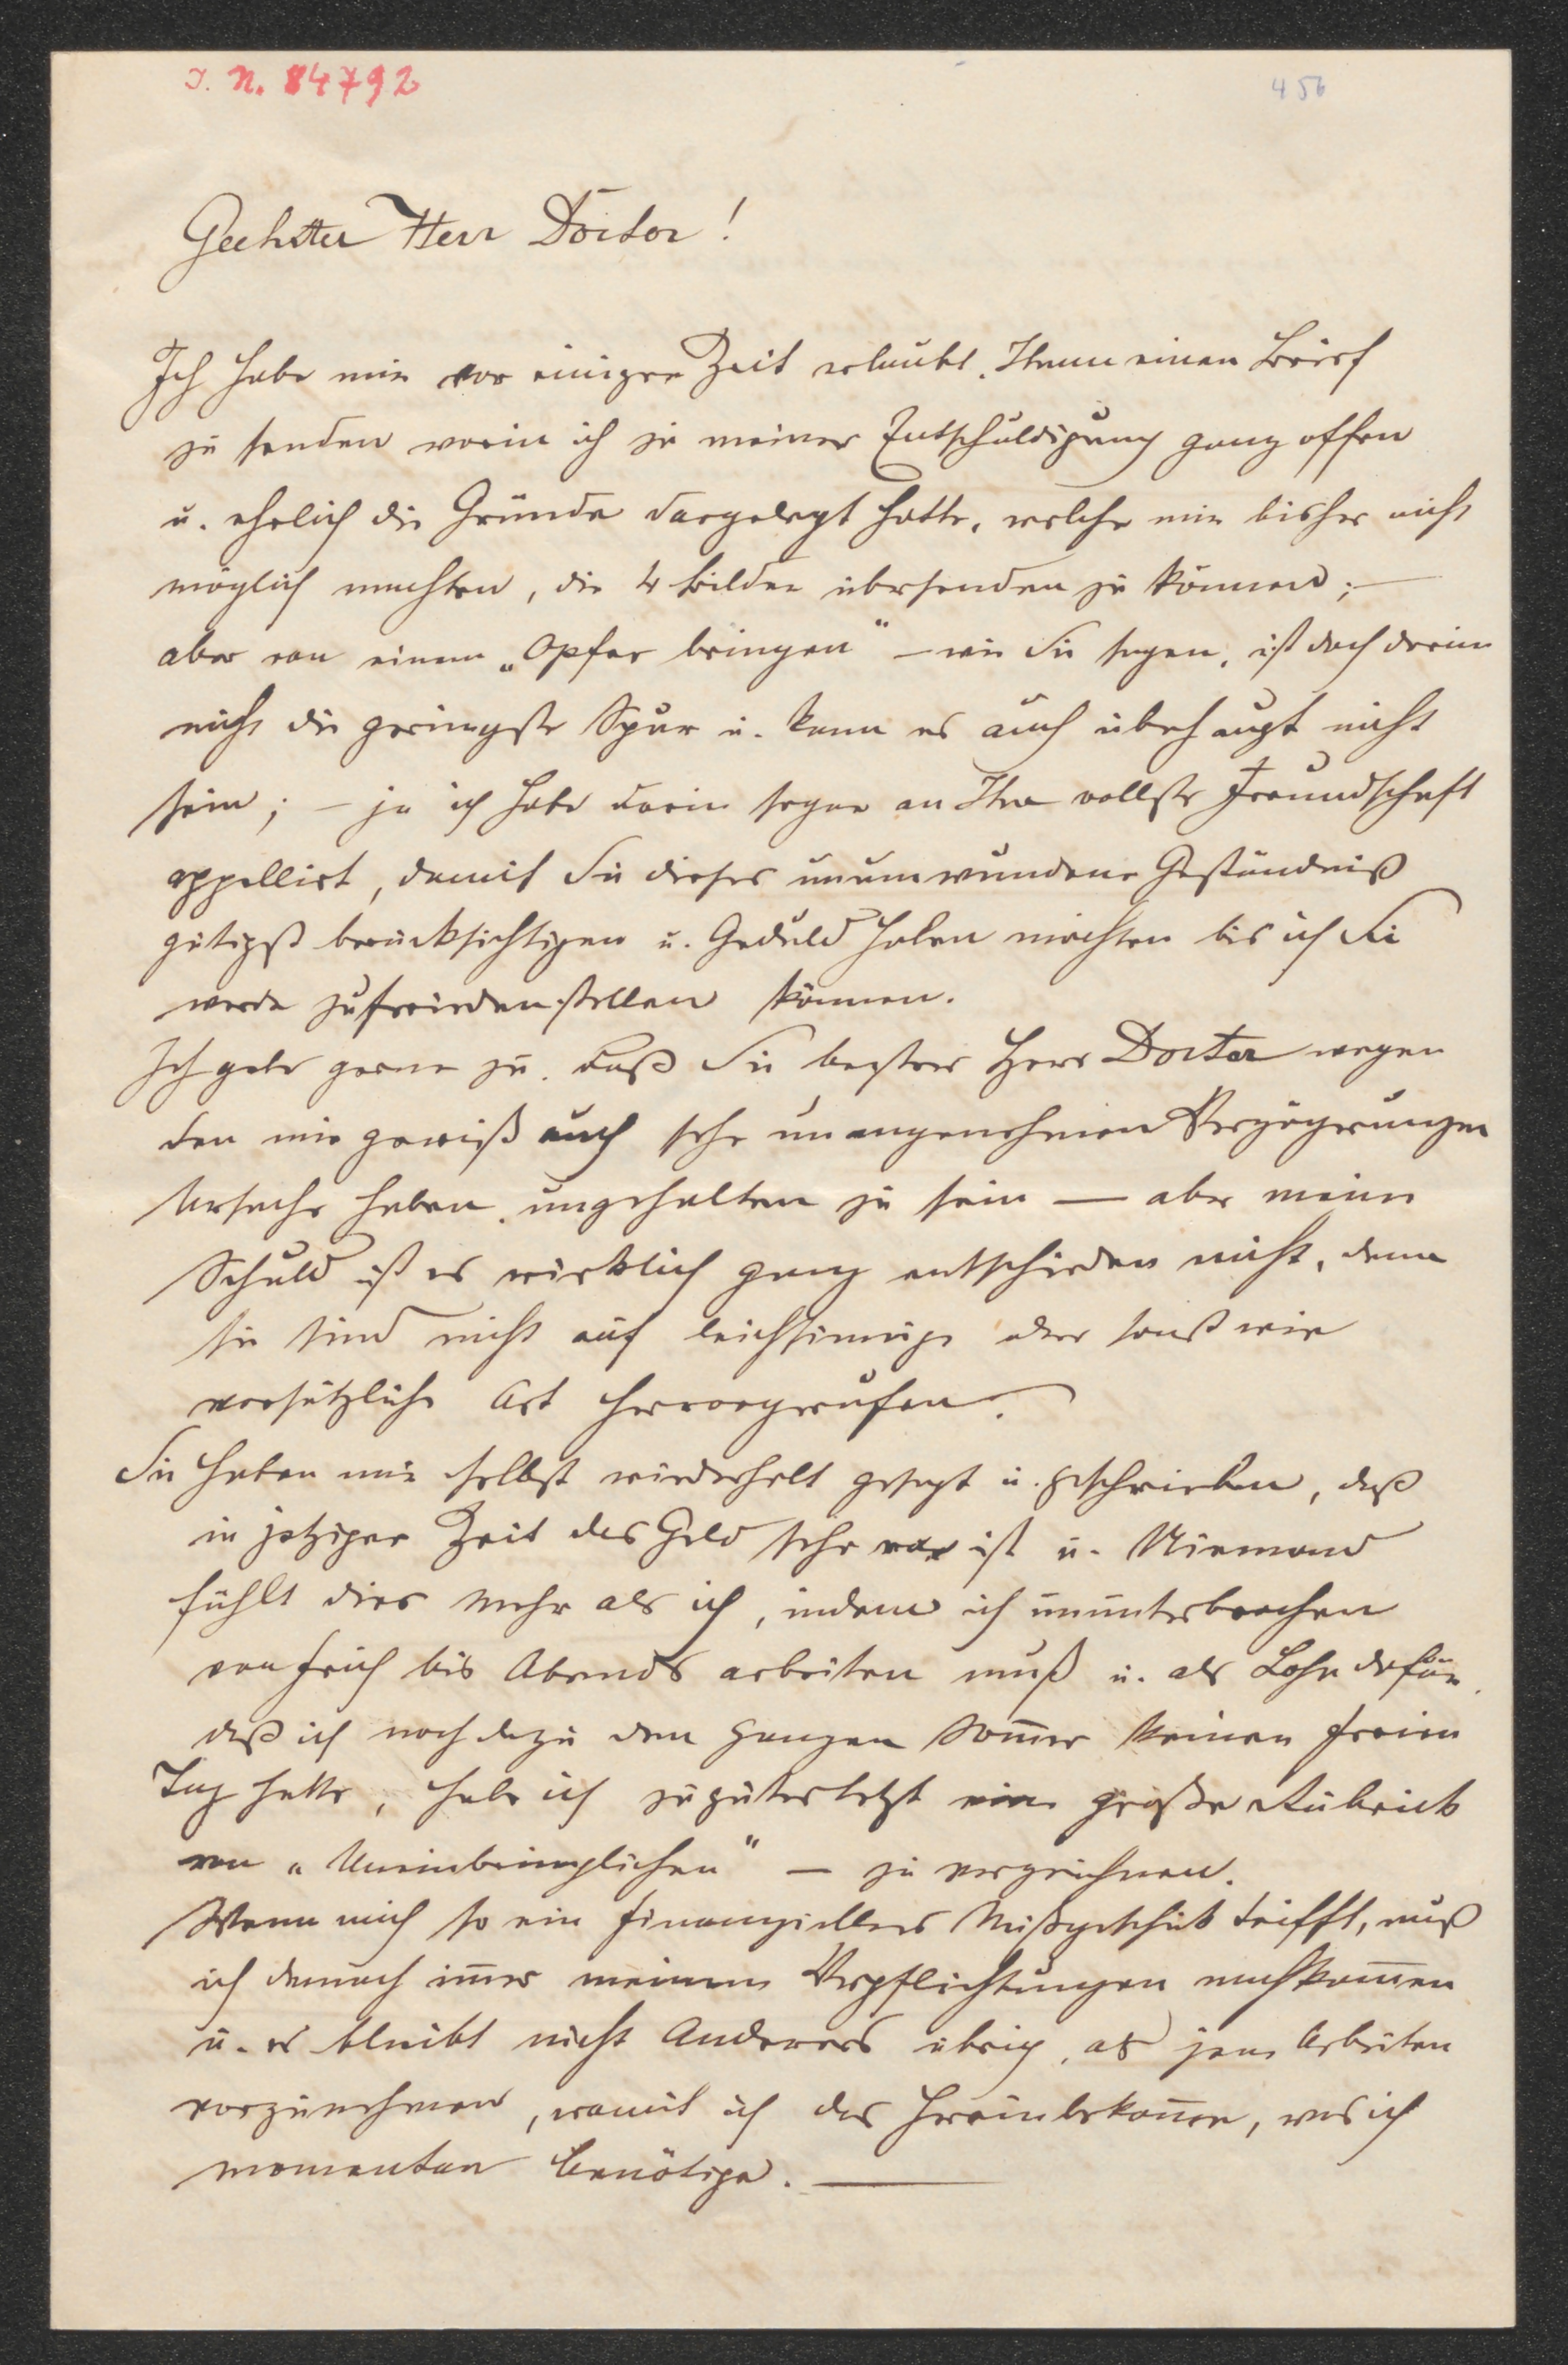 J. N. 84792
456
Geehrter Herr Doctor!
Ich habe mir vor einiger Zeit erlaubt, Ihnen einen Brief
zu senden worin ich zu meiner Entschuldigung ganz offen
u. ehrlich die Gründe dargelegt hatte, welche mir bisher nicht
möglich machten, die 4 Bilder übersenden zu können; —
aber von einem „Opfer bringen" — wie Sie sagen, ist doch darin
nicht die geringste Spur u. kann es auch überhaupt nicht
sein; — ja ich habe darin sogar an Ihre vollste Freundschaft
appellirt, damit Sie dieses unumwundene Geständniß
gütigst berücksichtigen u. Geduld haben möchten bis ich Sie
werde zufriedenstellen können.
Ich gebe gerne zu, daß Sie bester Herr Doctor wegen
den mir gewiß auch sehr unangenehmen Verzögerungen
Ursache haben, ungehalten zu sein — aber meine
Schuld ist es wirklich ganz entschieden nicht, denn
sie sind nicht auf leichtsinnige oder sonst wie
vorsätzliche Art hervorgerufen.
Sie haben mir selbst wiederholt gesagt u. geschrieben, daß
in jetziger Zeit das Geld sehr rar ist u. Niemand
fühlt dies mehr als ich, indem ich ununterbrochen
von früh bis Abends arbeiten muß u. als Lohn dafür,
daß ich noch dazu den ganzen Som̅er keinen freien
Tag hatte, habe ich zuguterletzt eine große Rubrick
von „Uneinbringlichen" — zu verzeichnen.
Wenn mich so ein finanzielles Mißgeschick trifft, muß
ich dennoch im̅er meinen Verpflichtungen nachkom̅en
u. es bleibt nicht Anderes übrig, als jene Arbeiten
vorzunehmen, womit ich das hereinbekom̅e, was ich
momentan benötige. —